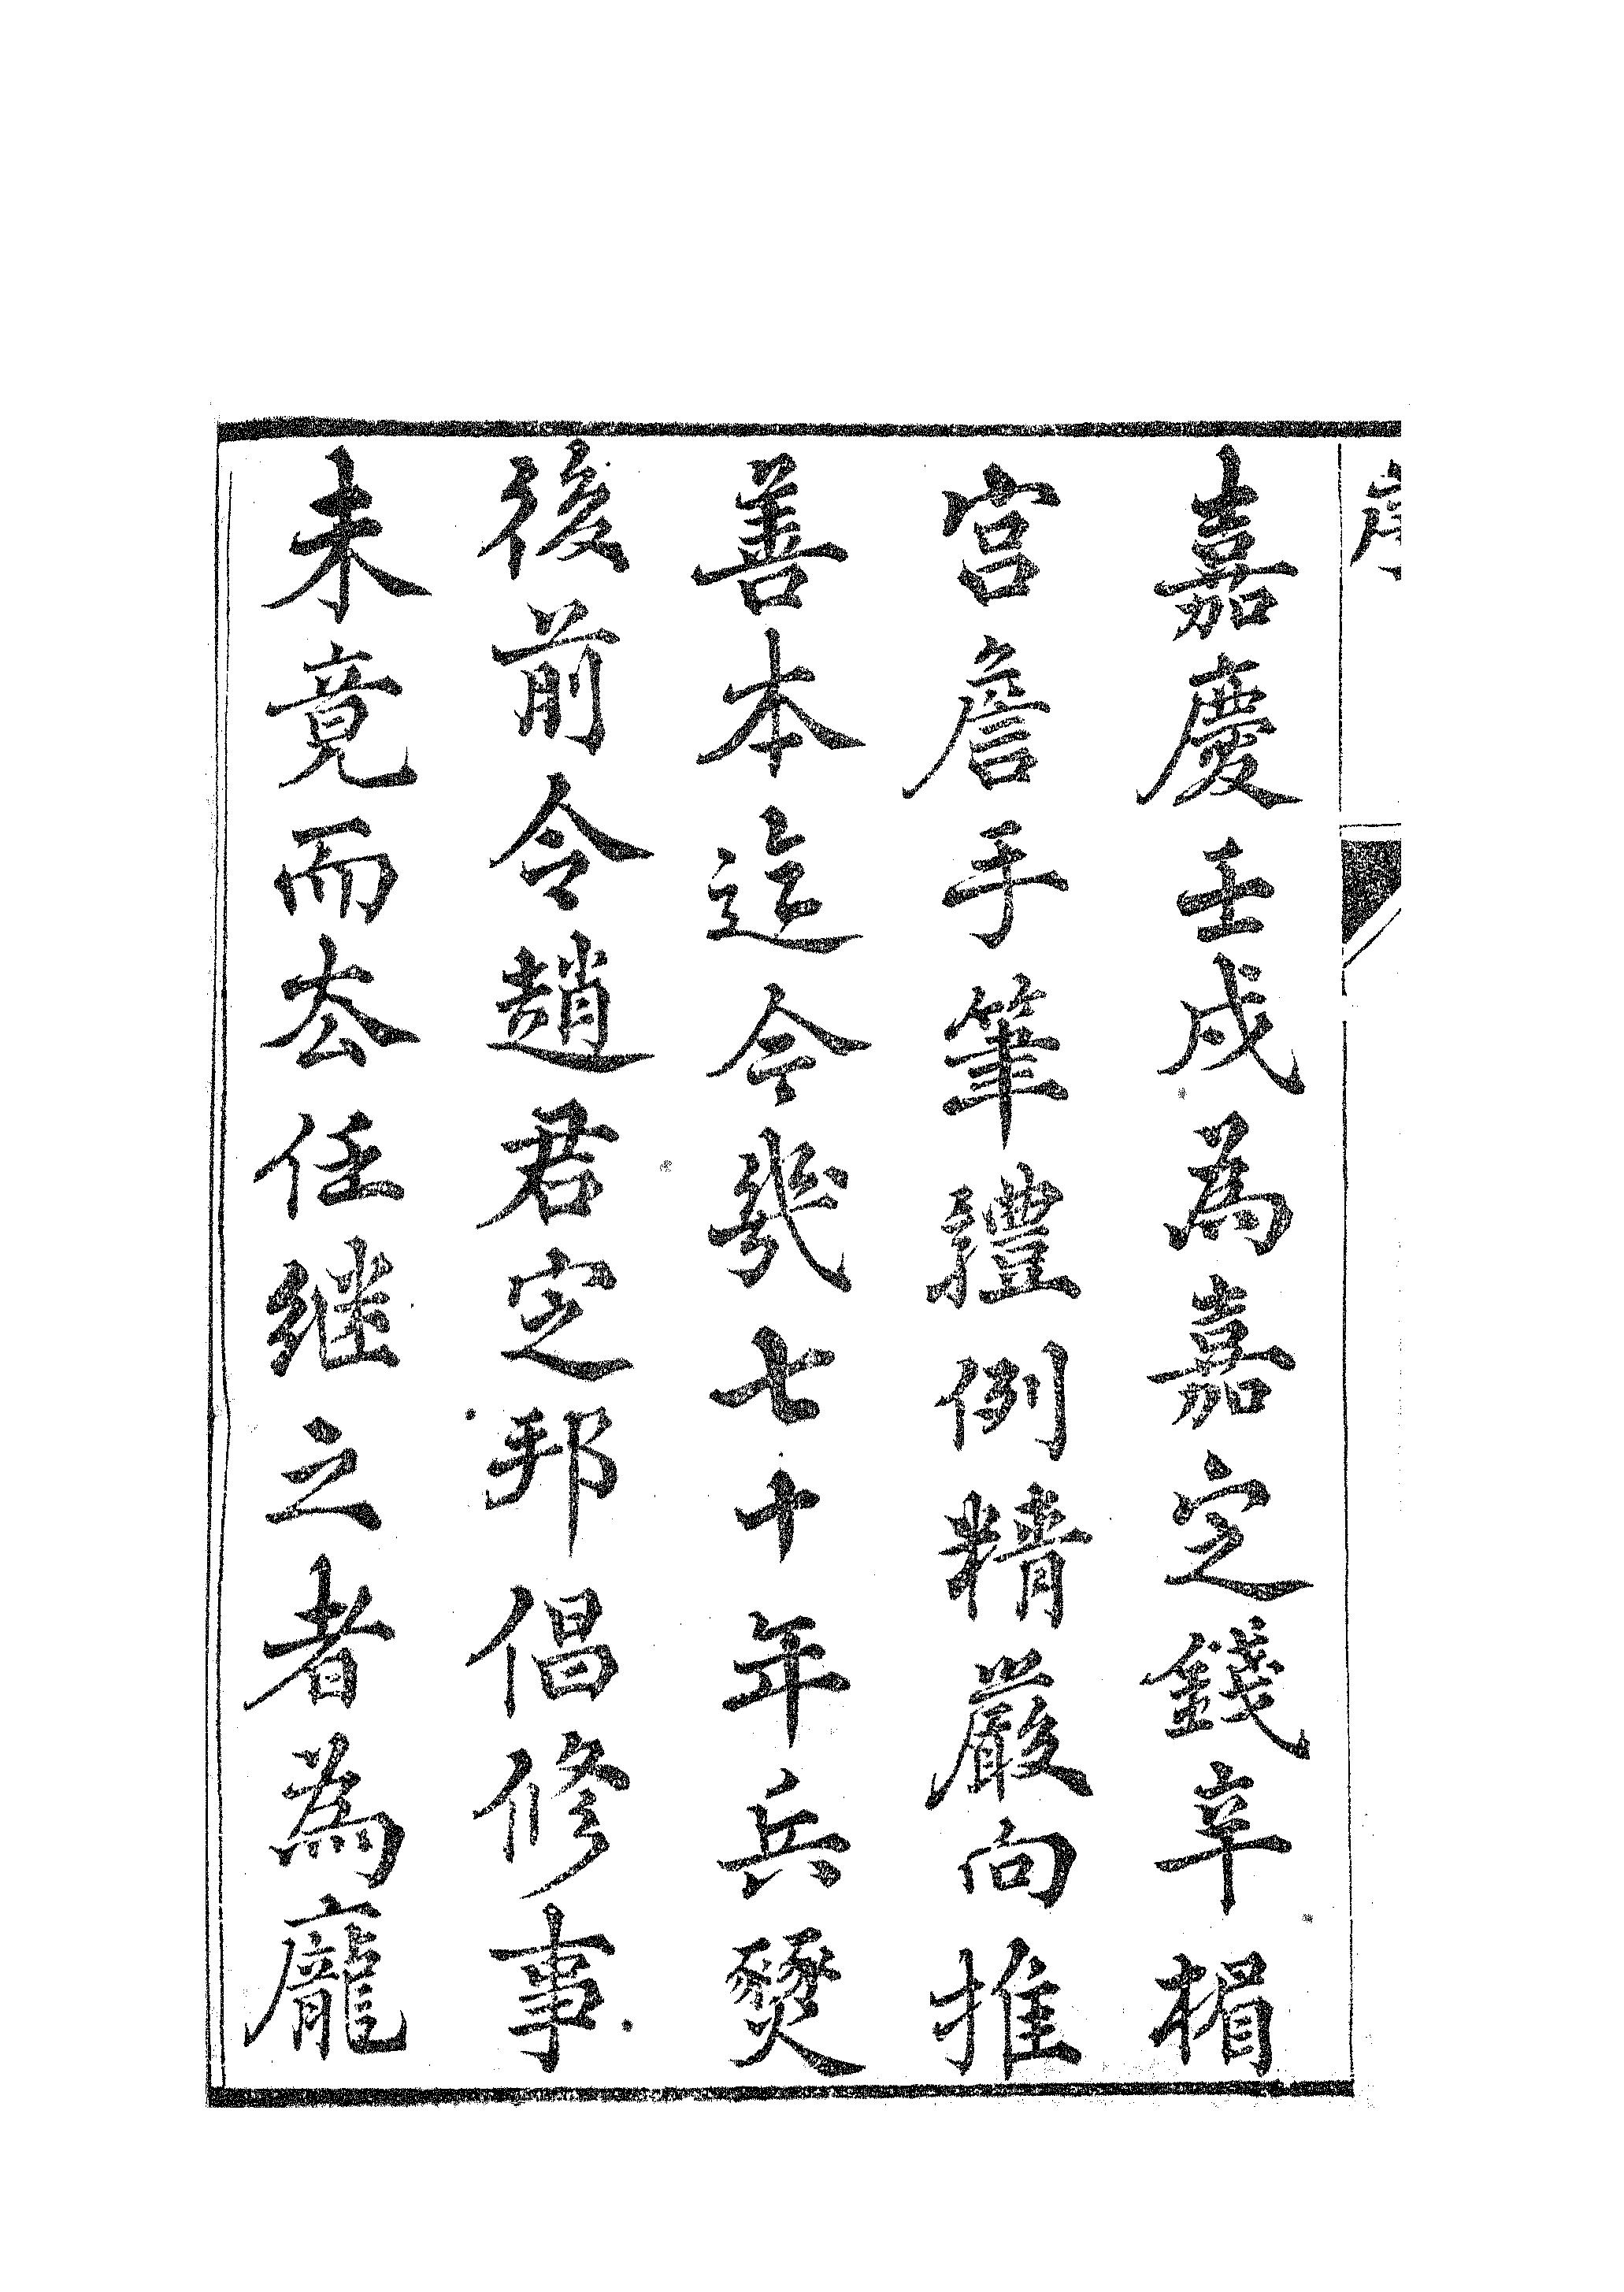 序
嘉慶壬戌為嘉定錢辛楣
宮詹手筆體例精嚴向推
善本迄今幾七十年兵燹
後前令趙君定邦倡修事
未竟而厺任継之者為龐